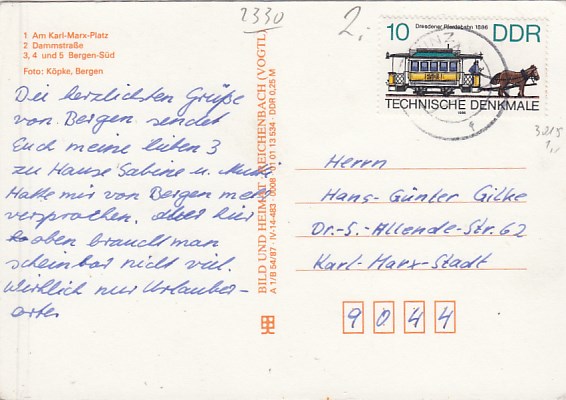 2330
2.
1 Am Karl-Marx-Platz
2 Dammstraße
3, 4 und 5 Bergen-Süd
Foto: Köpke, Bergen
Die herzlichsten Grüße
von Bergen sendet
Euch meine lieben 3
zu Hause Sabine u.
Hatte mir von Bergen mehr
versprochen. Aber hier
oben braucht man
scheinbar nicht viel.
Wirklich nur Urlauber-
orte.
BILD UND HEIMAT REICHENBACH (VOGTL)
A 1/B 54/87 · IV-14-483 · 01 01 13 534 · DDR 0,25 M
Dresdener Pferdebahn 1886
10 DDR
TECHNISCHE DENKMALE
1986
3215
1,-
Herrn
Hans-Günter Gilke
Dr.-S.-Allende-Str. 62
Karl-Marx-Stadt
9044